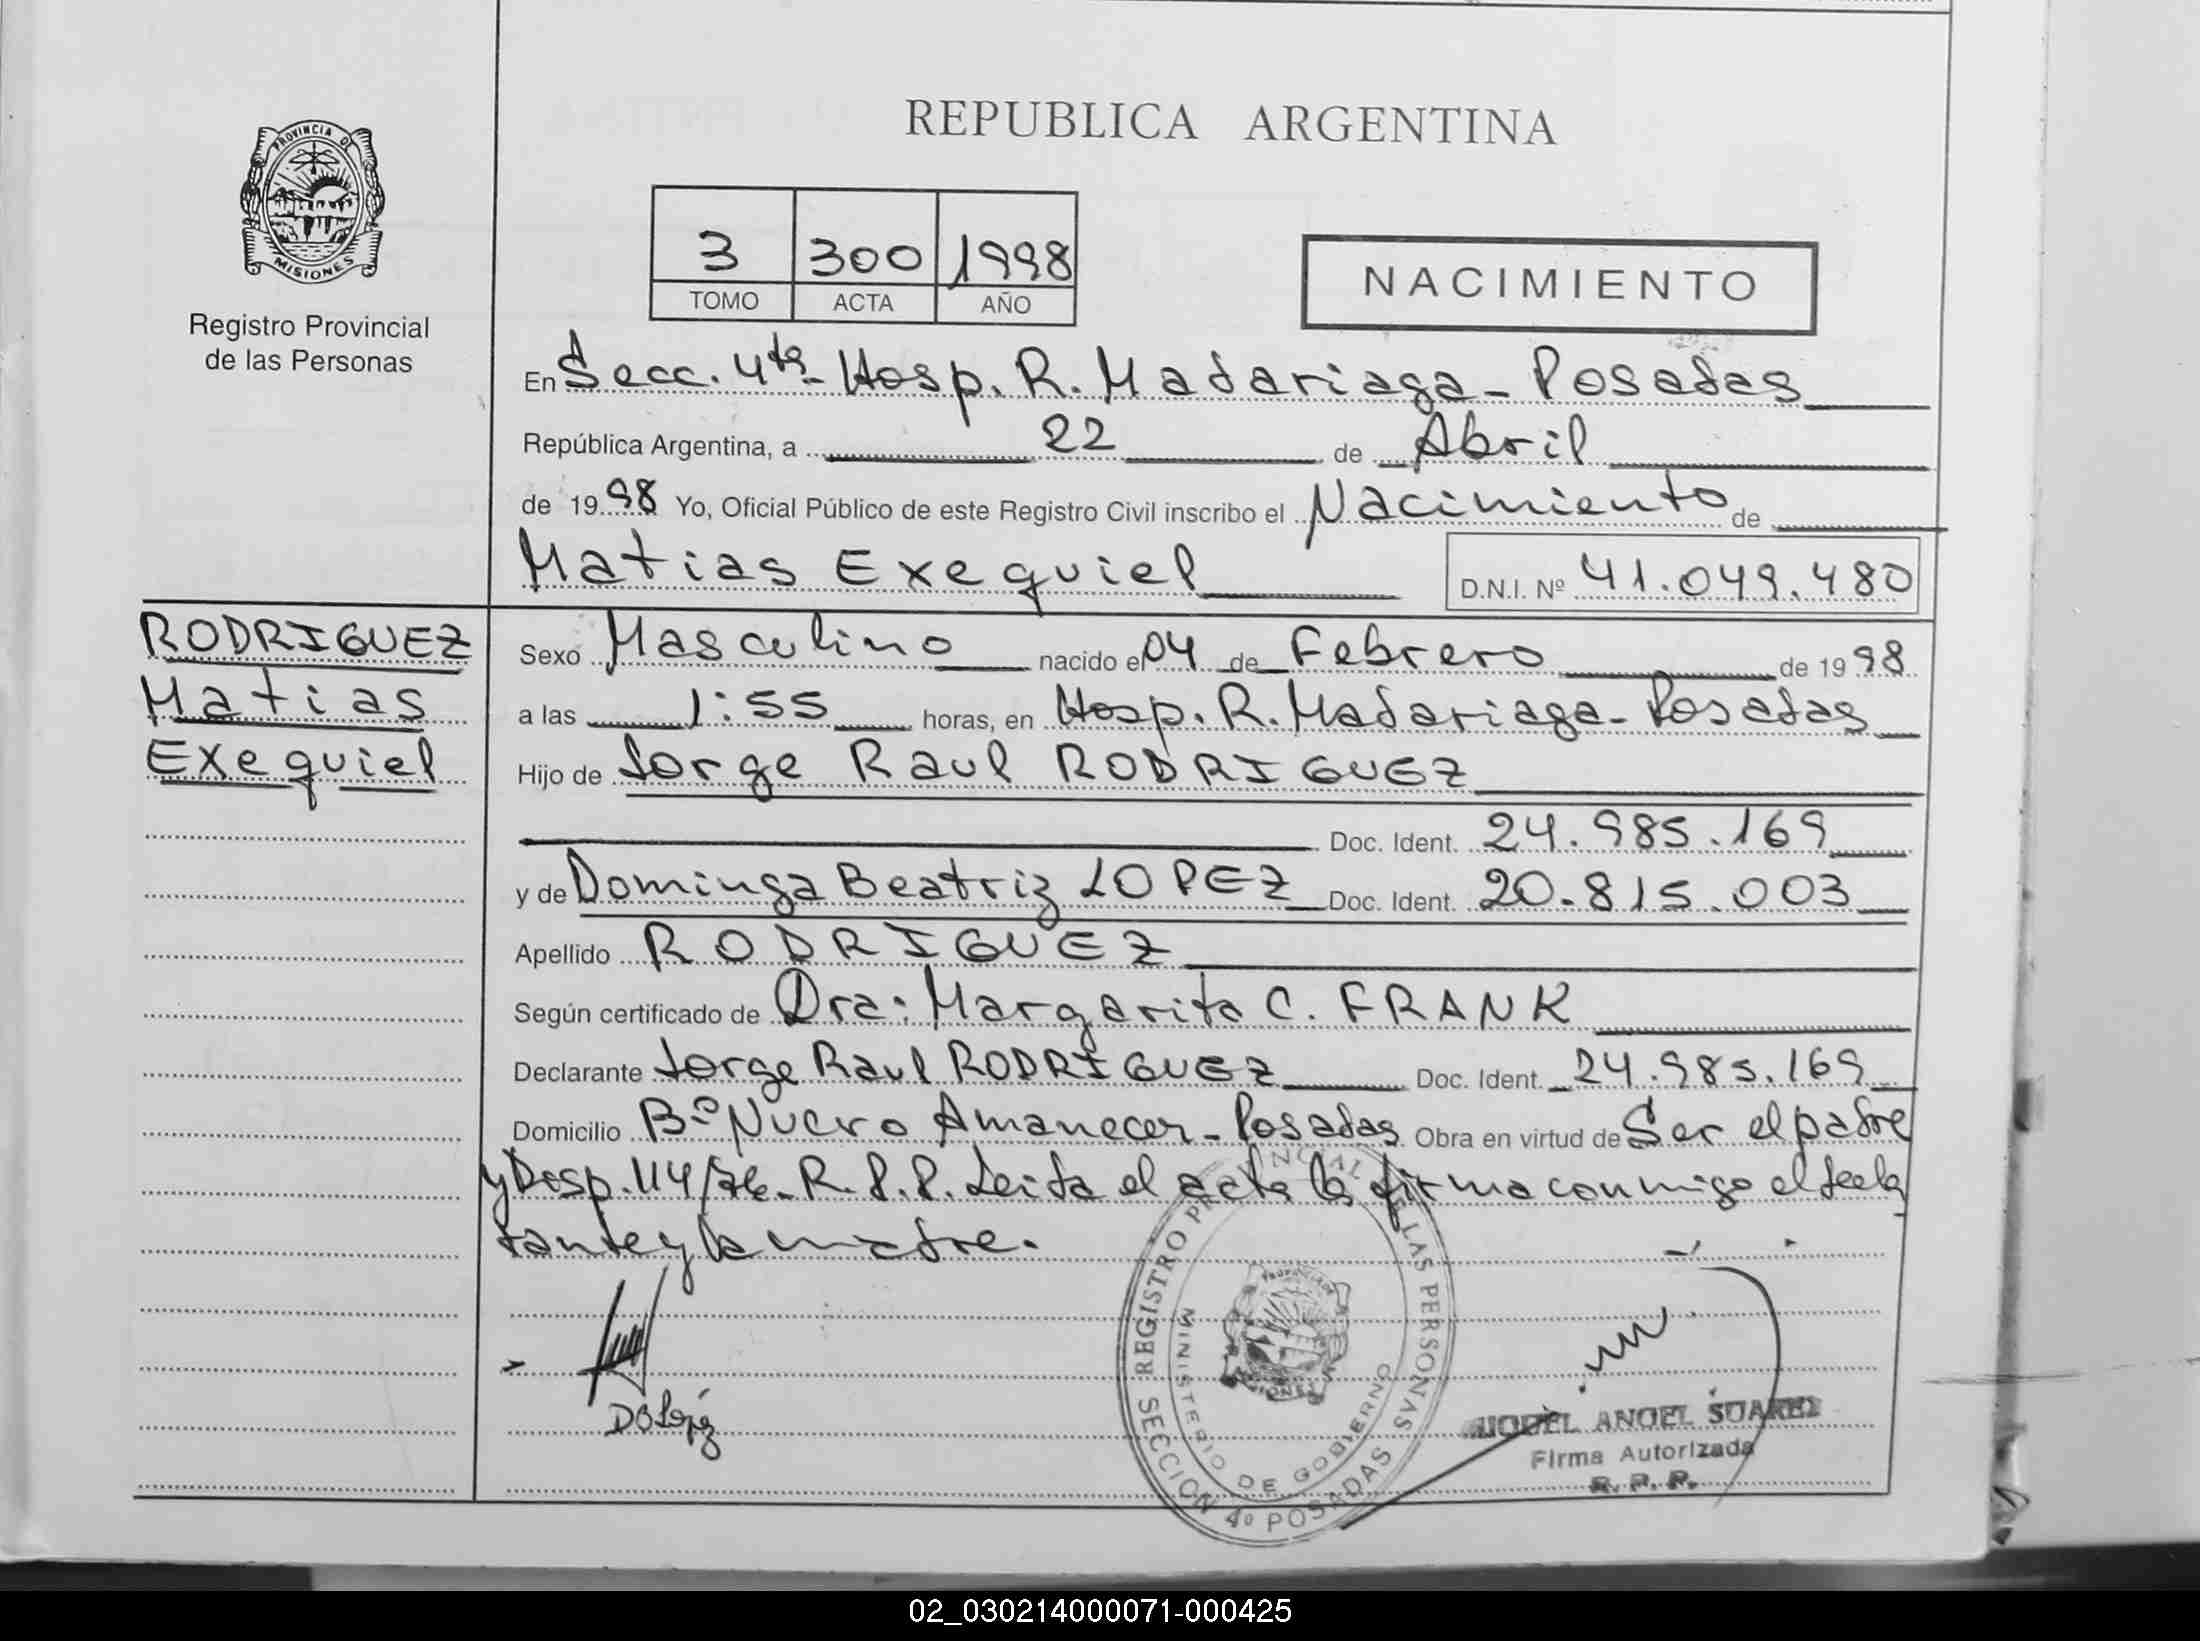 PROVINCIA DE
MISIONES
Registro Provincial
de las Personas
REPUBLICA ARGENTINA
3 300 1998
TOMO ACTA AÑO
NACIMIENTO
En Secc. 4ta- Hosp. R. Madariaga - Posadas
República Argentina, a 22 de Abril
de 1998 Yo, Oficial Público de este Registro Civil inscribo el Nacimiento de
Matias Exequiel D.N.I. Nº 41.049.480
RODRIGUEZ
Matias
Exequiel
Sexo Masculino nacido el 04 de Febrero de 1998
a las 1:55 horas, en Hosp. R. Madariaga - Posadas
Hijo de Jorge Raul RODRIGUEZ
Doc. Ident. 24.985.169
y de Dominga Beatriz LOPEZ Doc. Ident. 20.815.003
Apellido RODRIGUEZ
Según certificado de Dra: Margarita C. FRANK
Declarante Jorge Raul RODRIGUEZ Doc. Ident. 24.985.169
Domicilio Bº Nuevo Amanecer - Posadas Obra en virtud de Ser el padre
y Desp. 114/76 - R.P.P. Leida el acta la firma conmigo el decla
rante y la madre.
REGISTRO PROVINCIAL DE LAS PERSONAS
MINISTERIO DE GOBIERNO
SECCION 4º POSADAS
DBLopéz
ANGEL SUAREZ
Firma Autorizada
R. P. P.
02_030214000071-000425